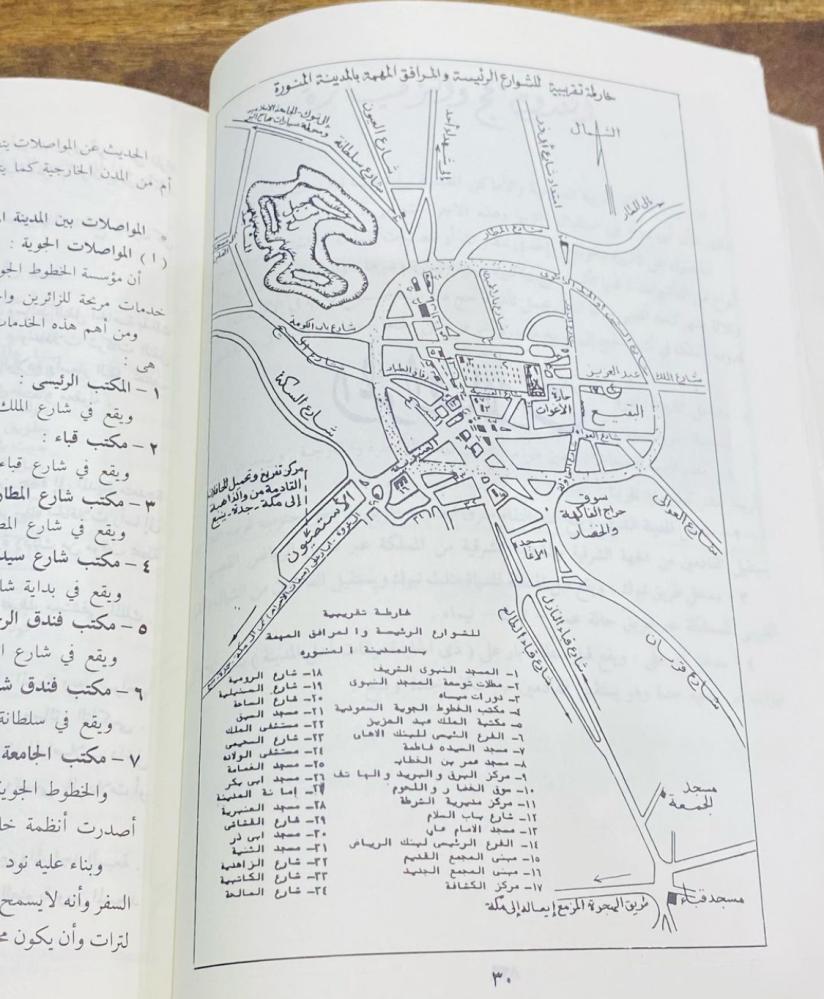 خارطة تقريبية للشوارع الرئيسة والمرافق المهمة بالمدينة المنورة
الشمال
إلى تبوك - الجامعة الاسلامية
شارع سلطانة
شارع العيون
إلى شهداء أحد
امتداد شارع أبي ذر
إلى المطار
شارع المطار
شارع باب الكومة
شارع السكة
زقاق الطيار
حارة الأغوات
شارع الملك عبد العزيز
البقيع
شارع العوالي
العنبرية
مركز تفريغ وتحميل الحافلات
القادمة من والذاهبة
إلى مكة - جدة - ينبع
الأستصيون
سوق
حراج الفاكهة
والخضار
مسجد
الأغا
شارع قباء النازل
شارع قباء الطالع
شارع قربان
مسجد
الجمعة
مسجد قباء
طريق الهجرة المزمع إيصاله إلى مكة
خارطة تقريبية
للشوارع الرئيسة والمرافق المهمة
بالمدينة المنوره
١- المسجد النبوى الشريف
٢- مظلات توسعة المسجد النبوى
٣- دورات مياه
٤- مكتب الخطوط الجوية السعودية
٥- مكتبة الملك عبد العزيز
٦- الفرع الرئيسى للبنك الاهلى
٧- مسجد السيده فاطمة
٨- مسجد عمر بن الخطاب
٩- مركز البرق والبريد والهاتف
١٠- سوق الخضار واللحوم
١١- مركز مديرية الشرطة
١٢- شارع باب السلام
١٣- مسجد الامام على
١٤- الفرع الرئيسى لبنك الرياض
١٥- مبنى المجمع القديم
١٦- مبنى المجمع الجديد
١٧- مركز الكشافة
١٨- شارع الرومية
١٩- شارع العينية
٢٠- شارع الساحة
٢١- مسجد السبق
٢٢- مستشفى الملك
٢٣- شارع السحيمى
٢٤- مستشفى الولاده
٢٥- مسجد الغمامة
٢٦- مسجد ابى بكر
٢٧- امانة المدينة
٢٨- مسجد العنبرية
٢٩- شارع القشاشى
٣٠- مسجد ابى ذر
٣١- مسجد الثنية
٣٢- شارع الزاهدية
٣٣- شارع الكاتبية
٣٤- شارع الصالحة
٣٠
الحديث عن المواصلات
أم من المدن الخارجية كما
* المواصلات بين المدينة
( ا ) المواصلات الجوية :
أن مؤسسة الخطوط
خدمات مريحة للزائرين
ومن أهم هذه الخدمات
هى :
١ - المكتب الرئيسى :
ويقع في شارع الملك
٢ - مكتب قباء :
ويقع في شارع قباء
٣ - مكتب شارع المطار
ويقع في شارع
٤ - مكتب شارع
ويقع في بداية
٥ - مكتب فندق
ويقع في شارع
٦ - مكتب فندق
ويقع في سلطانة
٧ - مكتب الجامعة
والخطوط
أصدرت أنظمة
وبناء عليه نود
السفر وأنه لا يسمح
لترات وأن يكون